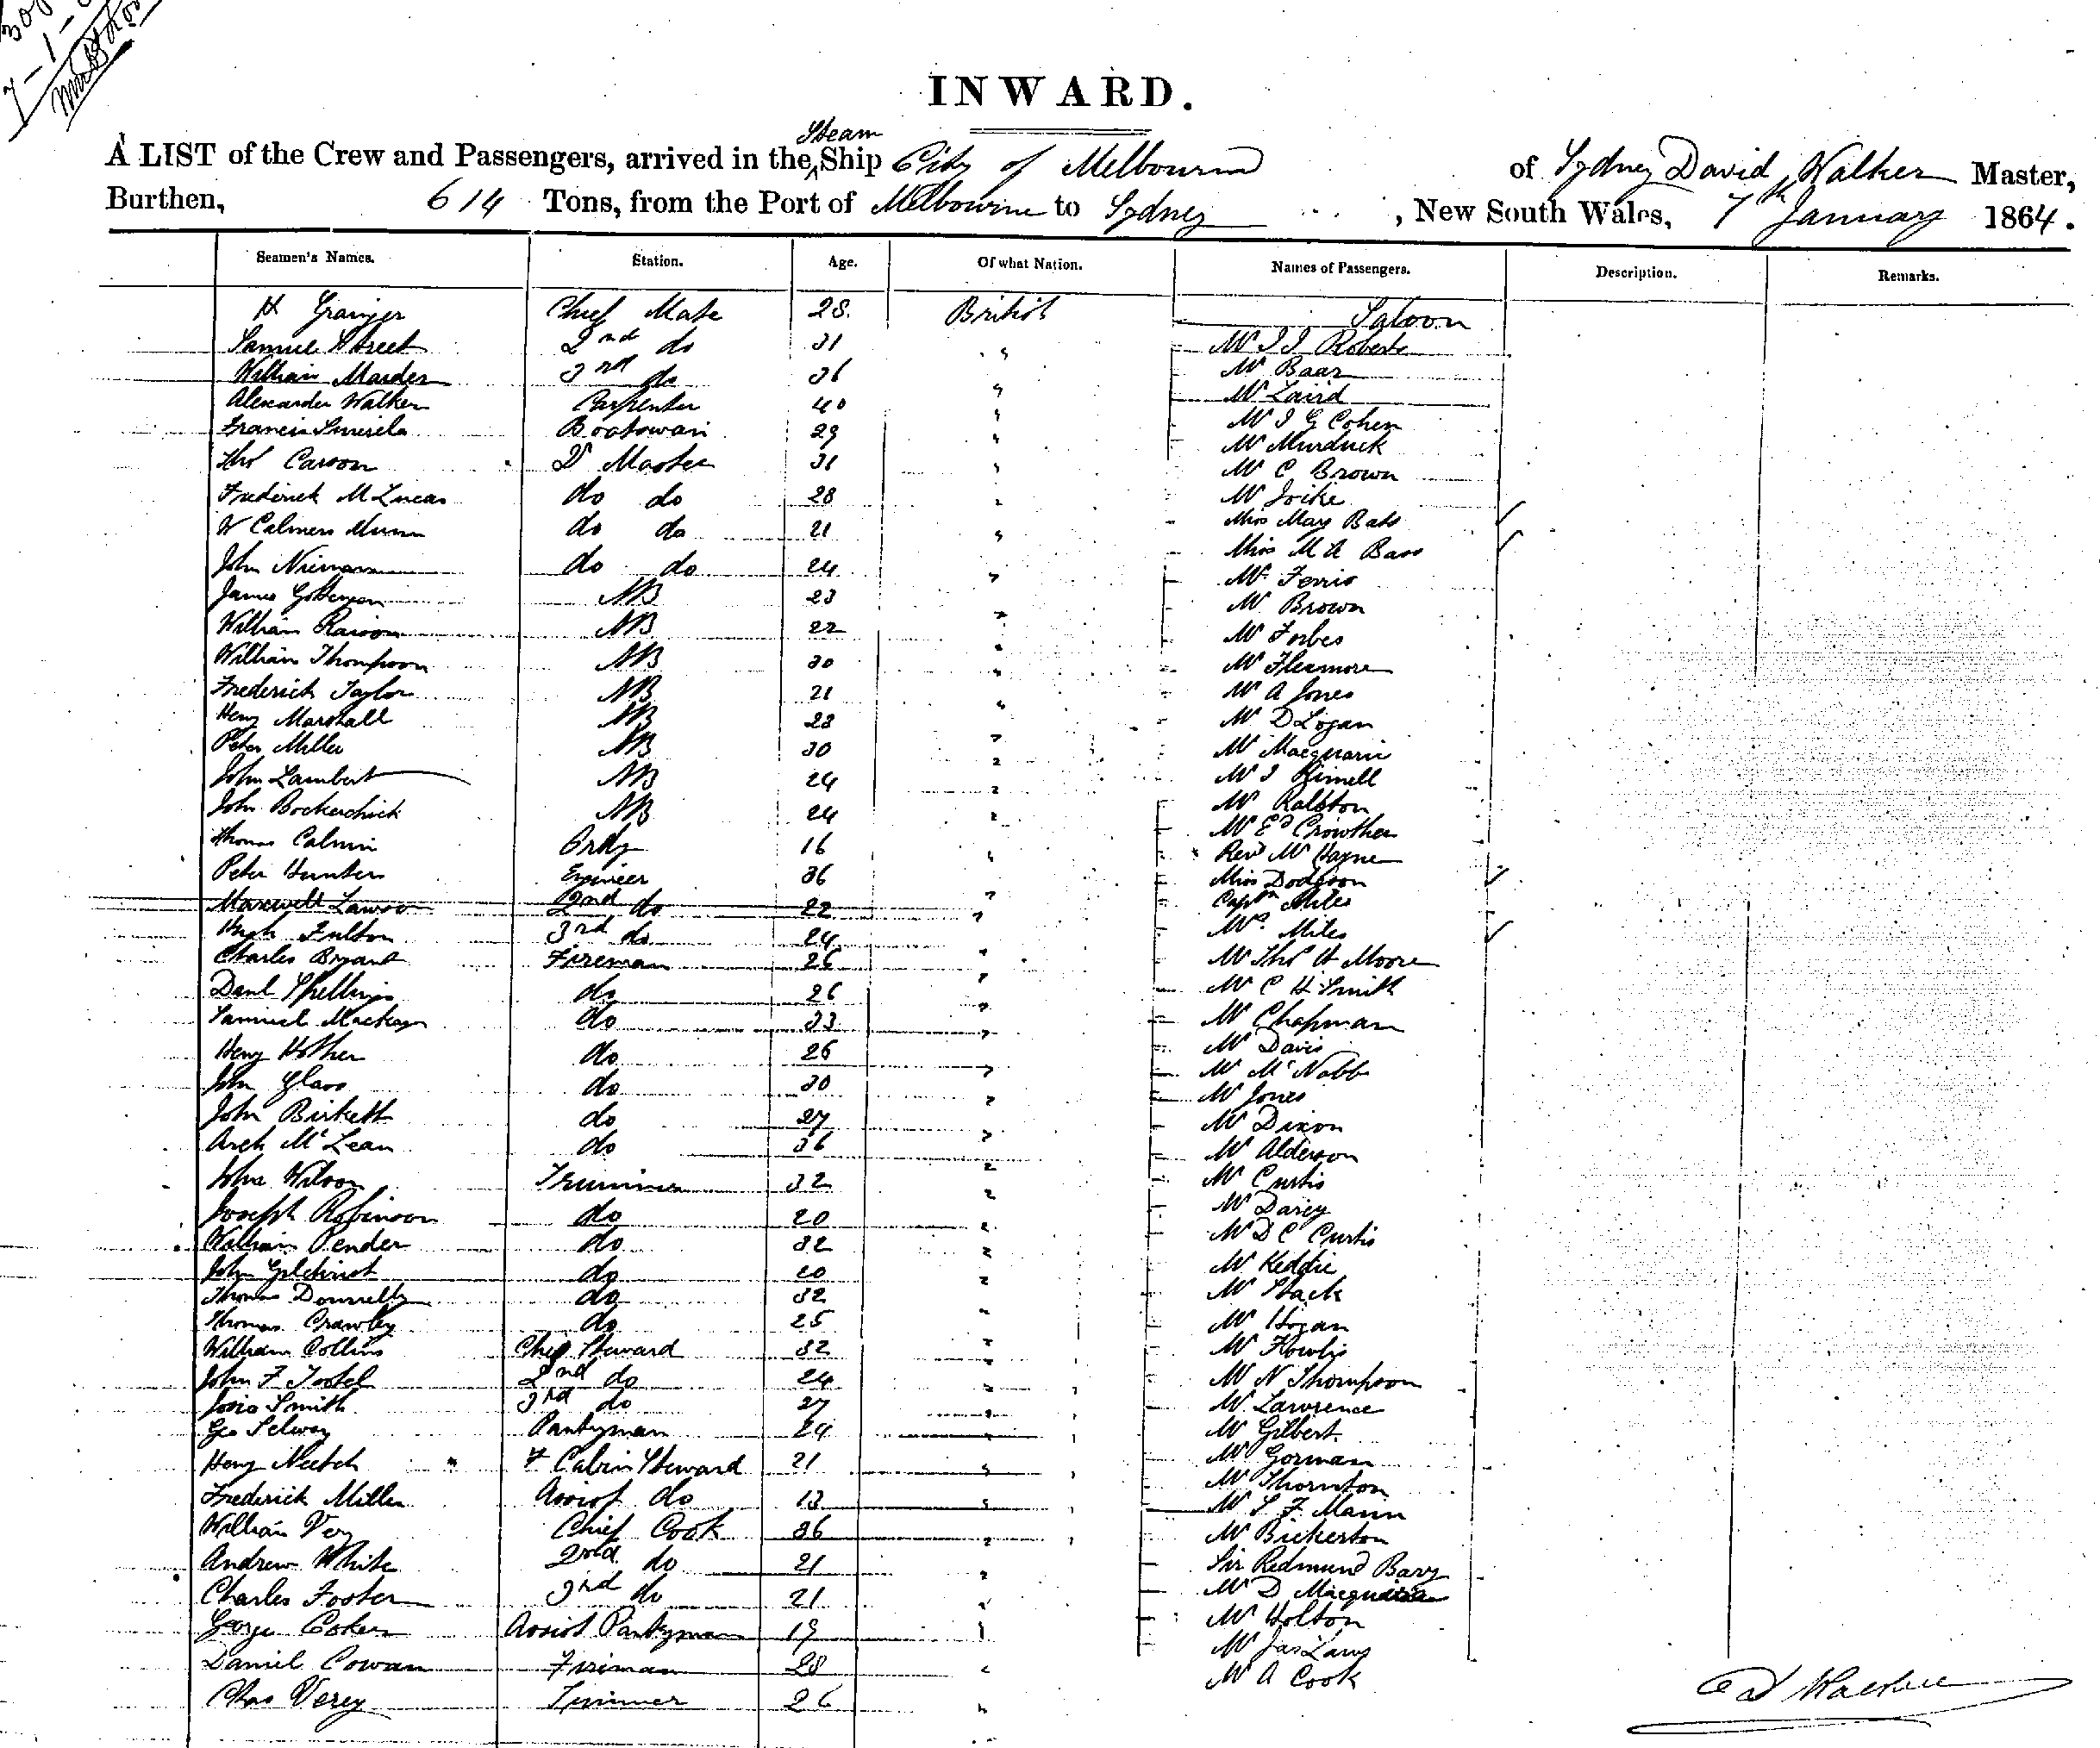 INWARD.
Steam
A LIST of the Crew and Passengers, arrived in the Ship City of Melbourne of Sydney David Walker Master,
Burthen, 614 Tons, from the Port of Melbourne to Sydney , New South Wales, 7th January 1864.
Seamen's Names. Station. Age. Of what Nation. Names of Passengers. Description. Remarks.
H Grainger Chief Mate 28. British Saloon
Samuel Street 2nd do 31 " Mr J J Roberts
William Marden 3rd do 36 " Mr Baar
Alexander Walker Carpenter 40 " Mr Laird
Francis Boatswain 29 " Mr J G Cohen
Mr Murduck
Thos Carson Qr Master 31 " Mr C Brown
Frederick M Lucas do do 28 " Mr Joske
W Calmers Munn do do 21 " Miss May Bass
John Niemann do do 24 " Miss M A Bass
Mr Ferris
James AB 23 " Mr Brown
William AB 22 " Mr Forbes
William Thompson AB 30 " Mr
Frederick Taylor AB 21 " Mr A Jones
Heny Marshall AB 28 " Mr D Logan
Peter Miller AB 30 " Mr Macquarie
John Lambert AB 24 " Mr J Kimell
John AB 24 " Mr Ralston
Mr Ed Crowther
Thomas Calmin Ordy 16 " Revd Mr Hayne
Peter Hunter Engineer 36 " Miss Dodgson
Maxwell Lawson 2nd do 22 " Captn Miles
Hugh Fulton 3rd do 24 " Mrs Miles
Charles Bryant Fireman 26 " Mr Thos H Moore
Danl Phillips do 26 " Mr C H Smith
Samuel Mackay do 33 " Mr Chapman
Heny Hother do 26 " Mr Davis
Mr McNabb
John Glass do 30 " Mr Jones
John Birkett do 27 " Mr Dixon
Arch McLean do 36 " Mr Alderson
John Wilson Trimmer 32 " Mr Curtis
Joseph Robinson do 20 " Mr Darcy
William Pender do 32 " Mr D C Curtis
John Gilchrist do 20 " Mr Keddie
Thomas Donnelly do 32 " Mr Stack
Thomas Crawley do 25 " Mr Hogan
William Collins Chief Steward 32 " Mr
John F Tostel 2nd do 24 " Mr N Thompson
Josia Smith 3rd do 27 " Mr Lawrence
Geo Selway Pantryman 24 " Mr Gilbert
Heny Neetch F Cabin Steward 21 " Mr Gorman
Mr Thornton
Frederick Miller Assist do 13 " Mr S F Mann
William Very Chief Cook 36 " Mr Bickerton
Andrew White 2nd do 21 " Sir Redmund Bary
Charles Foster 3rd do 21 " Mr D Macquarie
George Coker Assist Pantryman 19 " Mr Holton
Mr Jas Lawy
Daniel Cowan Fireman 28 " Mr A Cook
Chas Verey Trimmer 26 "